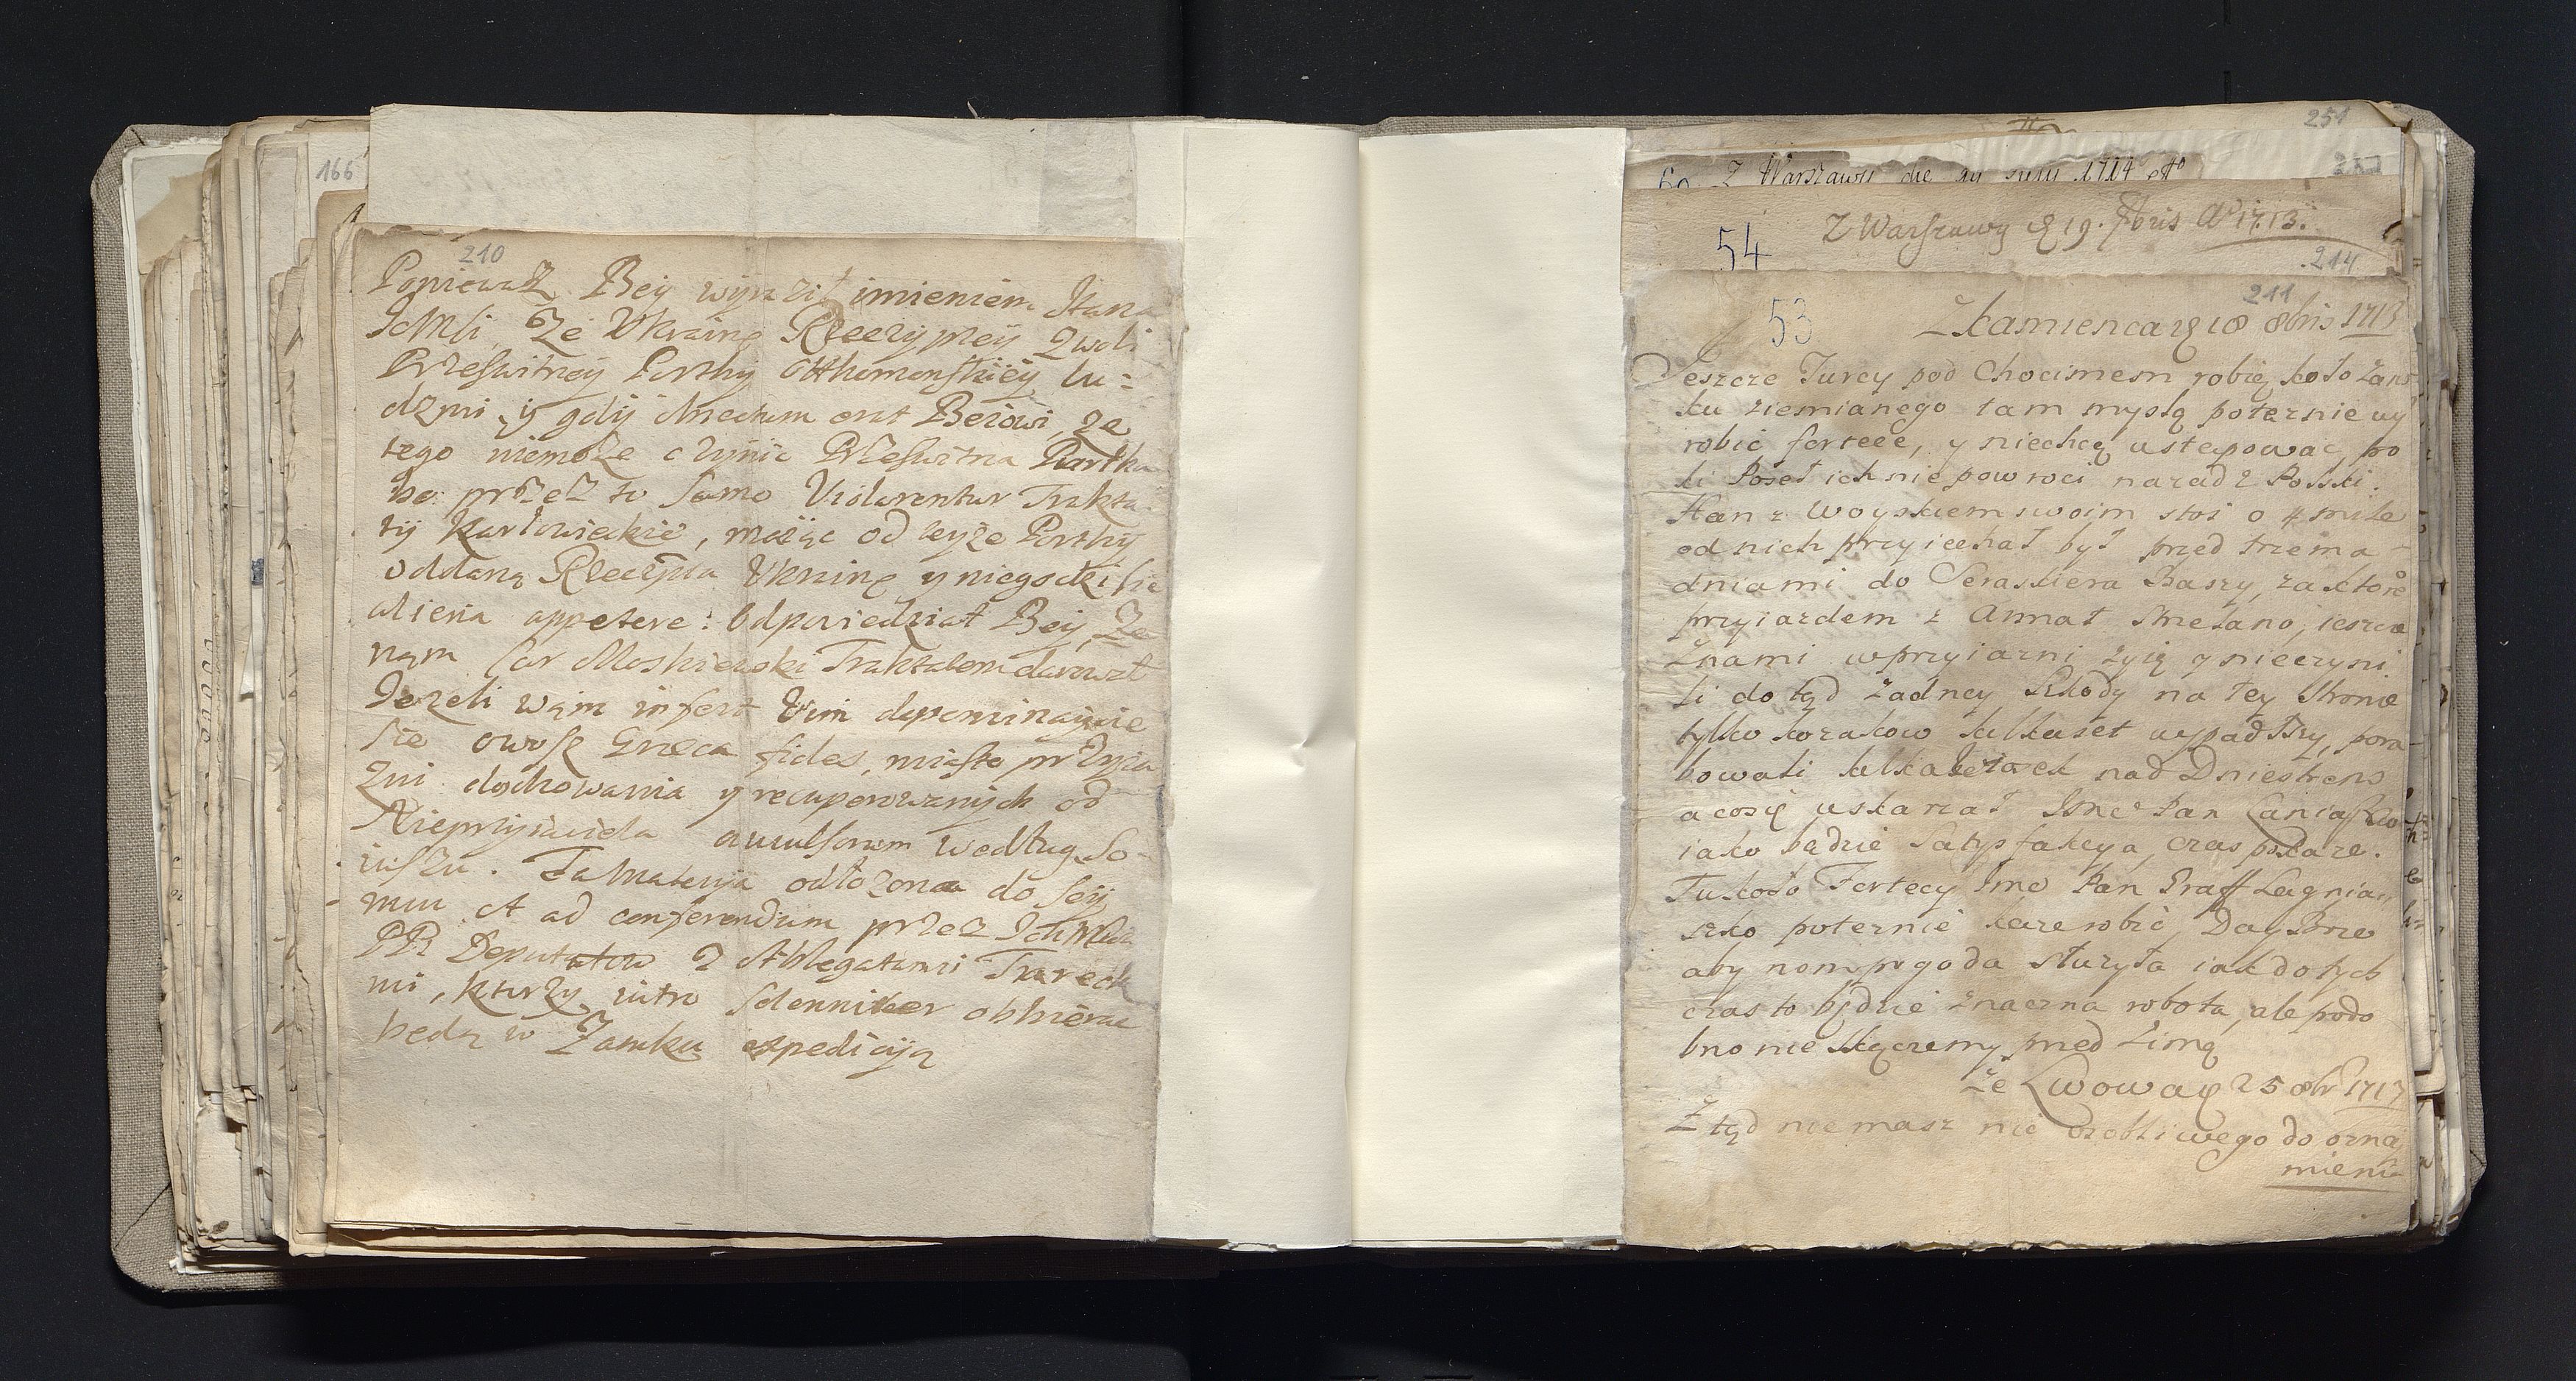 166
210
Poniewasz Bey wyraził imieniem Hana
JchMści, że Ukrainę Rzeczyptey zwoli
Przeswitney Porthy Otthomanskiey lu-
dzmi, y gdy dnectum erat Beiowi, ze
tego niemoże czynic Przeswitna Portha
bo przez to samo Violarentur Trakta-
ty Karłowieckie, maiąc od teyże Porthy
oddaną Rzeczpta Ukrainę y niegodzi się
aliena appetere: Odpowiedział Bey, Ze
nąm Car Moskiewski Traktatem darował
Jezeli wąm infert Vim dopominaycie
sie owosz Græca fides, miasto przyia
zni dochowania y recuperowanych od
Nieprzyiaciela avulsorum według So-
iuszu. Ta Materyia odłozona do Sey
mu A ad conferendum przez JchMściow
PP Deputatow z Ablegatami Tureck
mi, ktorzy iutro solenniter obbierac
będą w Zamku expedicyą
251
60 Z Warszawy die 1714
54 Z Warszawy 19. 8bris Ao 1713.
214
211
53 Z Kamienca 18 8bris 1713
Jeszcze Turcy pod Chocimem robią koło zam
ku ziemianego tam myslą potęznie wy
robic fortece, y niechcą ustępowac, po
ki Poseł ich nie powroci nazad z Polski.
Han z Woyskiem swoim stoi o 4 mile
od nich przyiechał był przed trzema
dniami do Seraskiera Baszy, za ktorẽ
przyiazdem z Armat strzelano, ieszcze
Znami wprzyiazni zyią y nieczyni
li dotąd zadney szkody na tey stronie
tylko kozakow kilkuset wypadszy, pora
bowali kilka wiosek nad Dniestrem
acosię uskarzał Jmc Pan
iako bądzie Satysfakcya, czas pokaze.
Tu koło Fortecy Jmc Pan Graff Lagnia
szko potęznie kaze robic, Day Boze
aby nom pogoda słuzyła iak do tych
czas to będzie znaczna robota, ale podo
bno nie skączemy przed Zimą
Ze Lwowa 25 8br 1713
Z tąd niemasz nic osobliwego do ozna
mienia